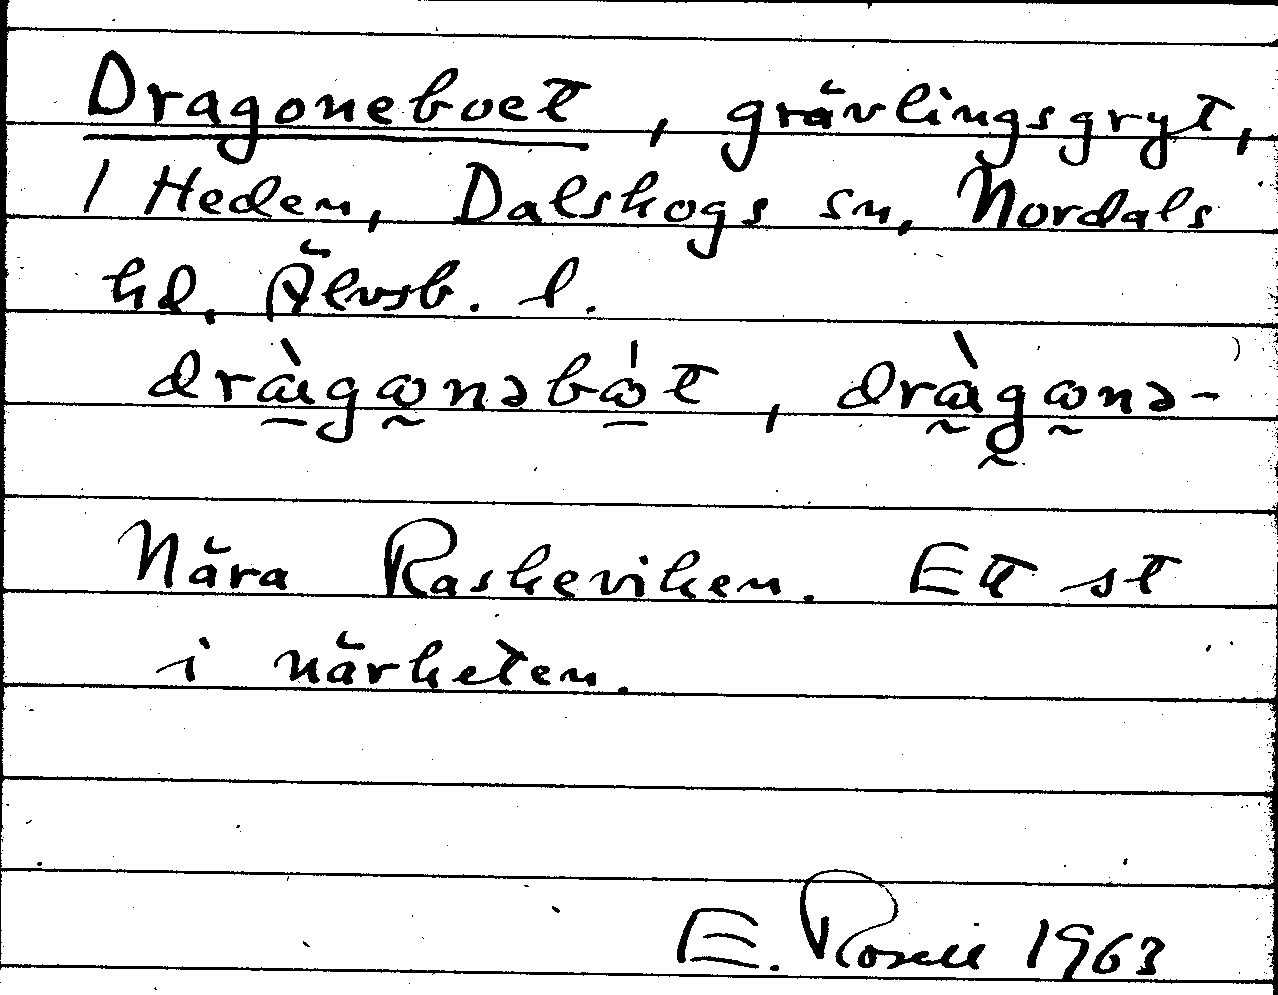 Dragoneboet, grävlingsgryt,
1 Heden, Dalskogs sn, Nordals
hd, Älvsb. l.
Nära Raskeviken. Ett st
i närheten.
E. Rosell 1963